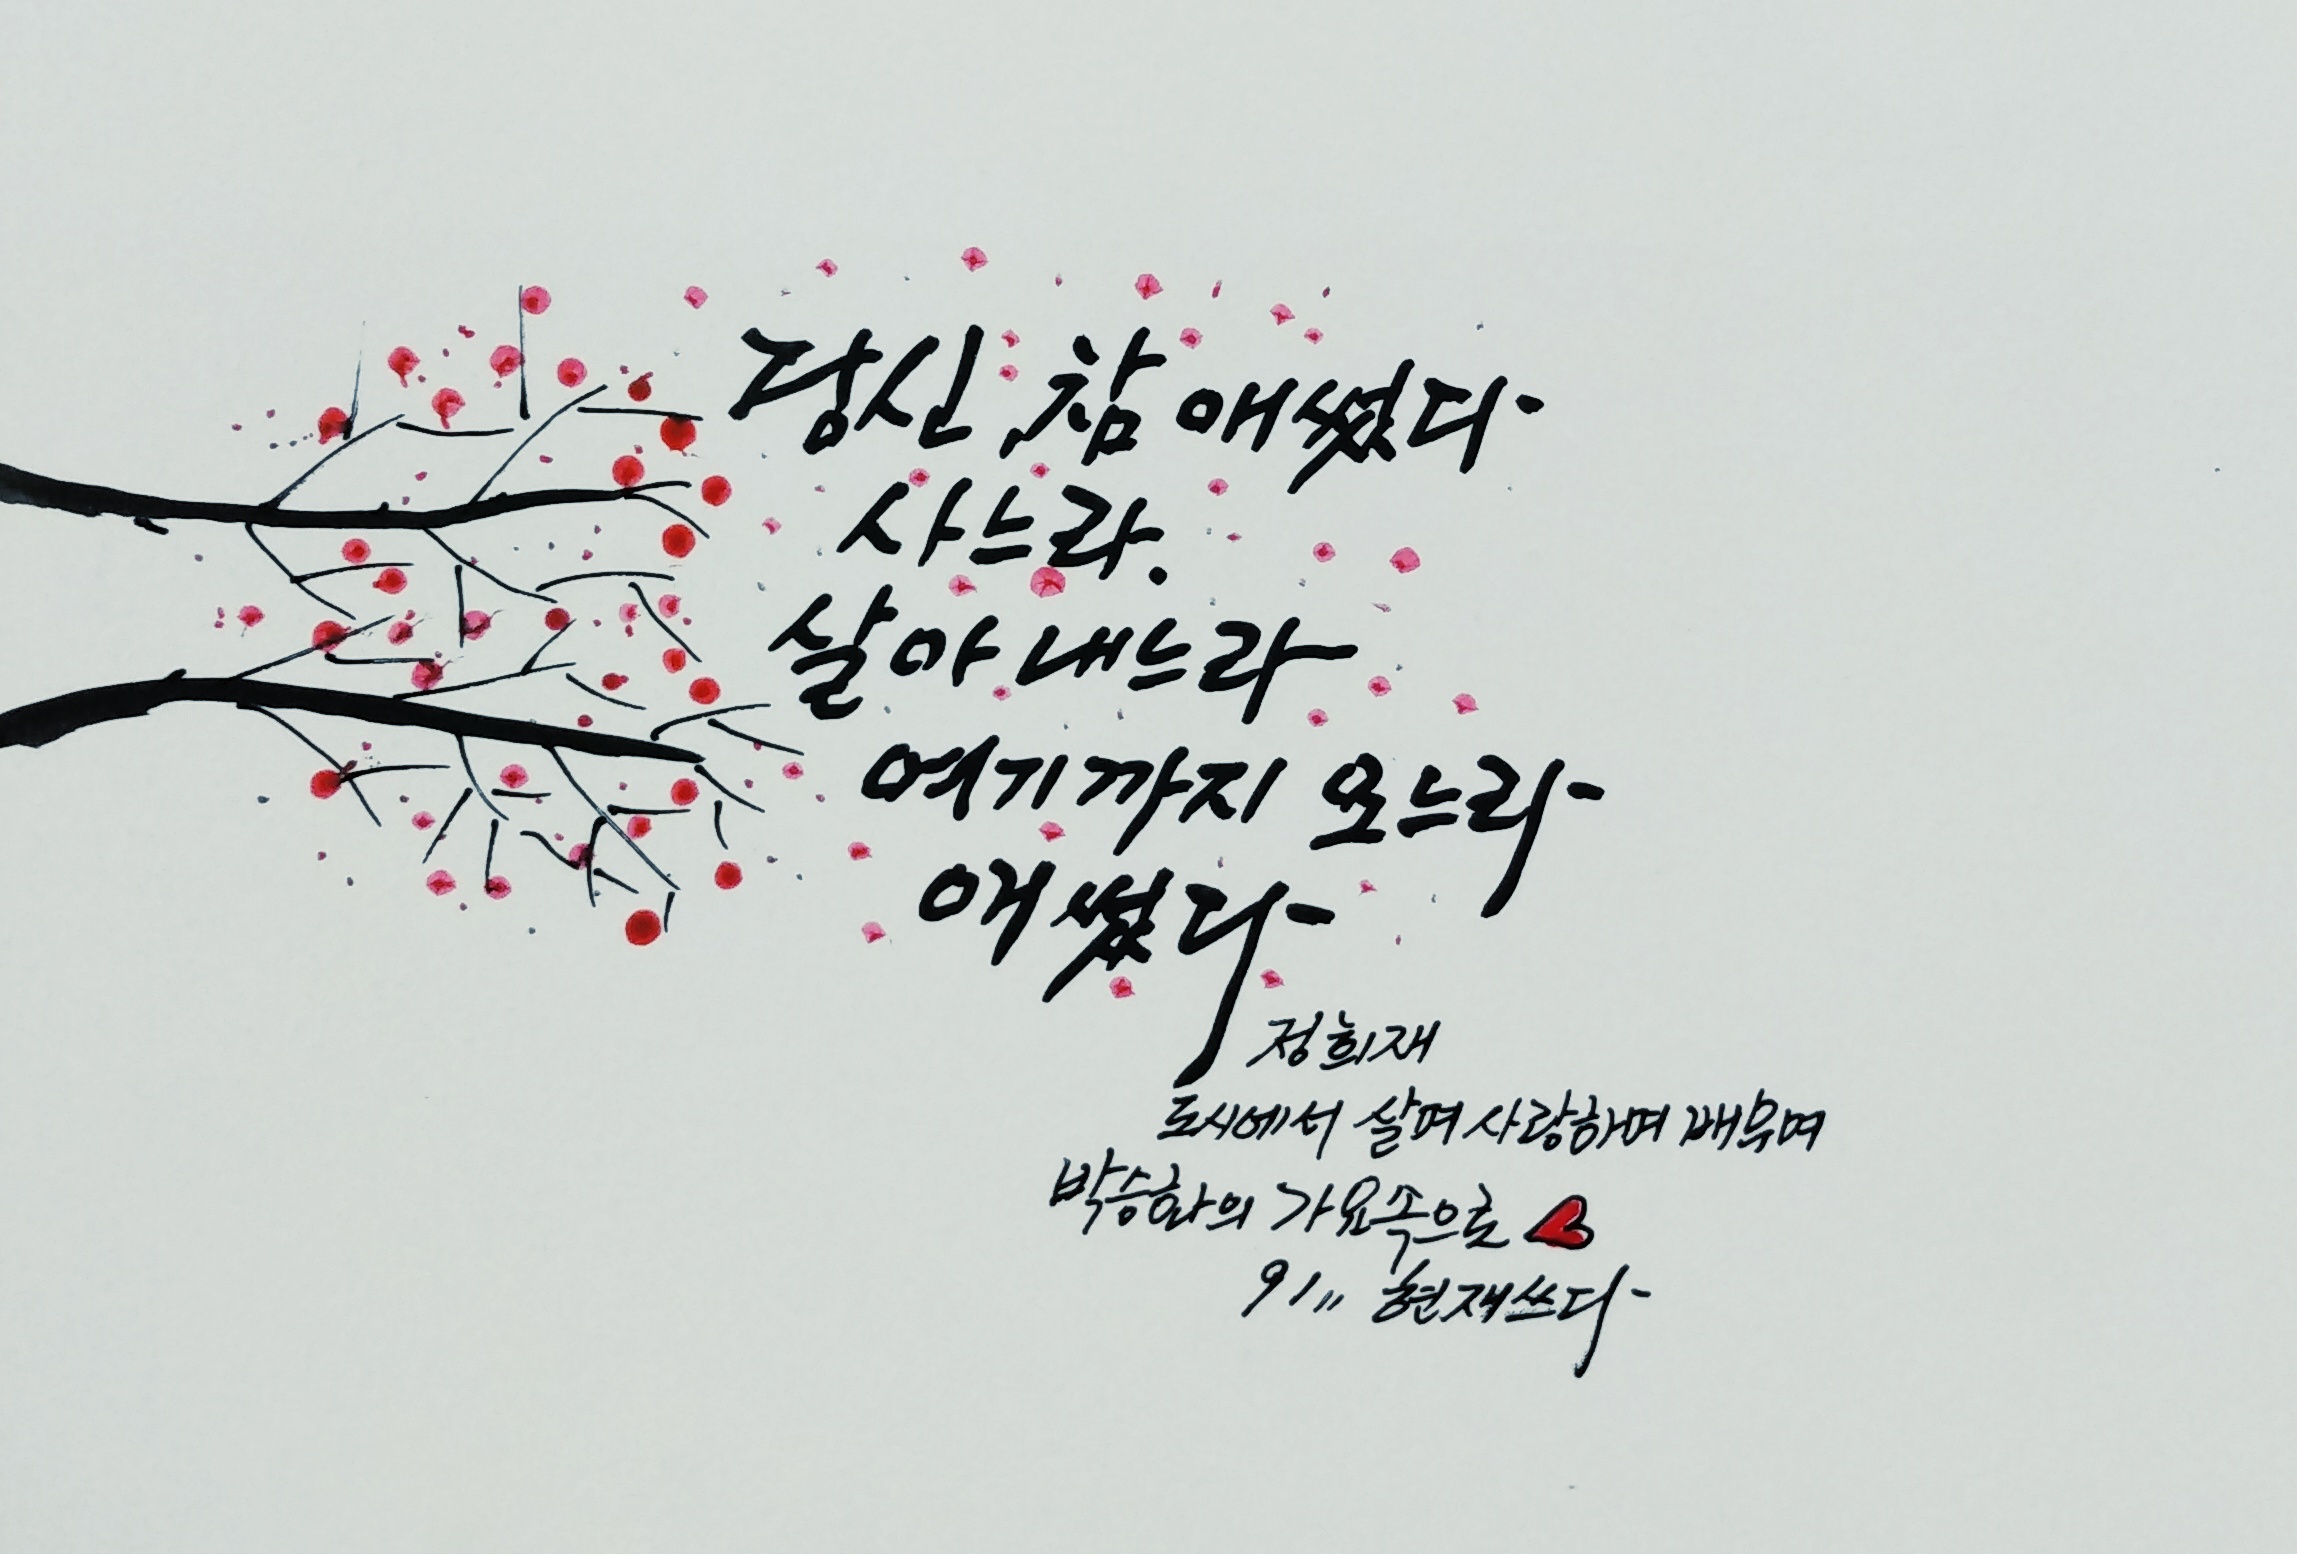 당신 참 애썼다
사느라.
살아내느라
여기까지 오느라
애썼다
정희재
도시에서 살며 사랑하며 배우며
박승화의 가요속으로
91" 현재쓰다